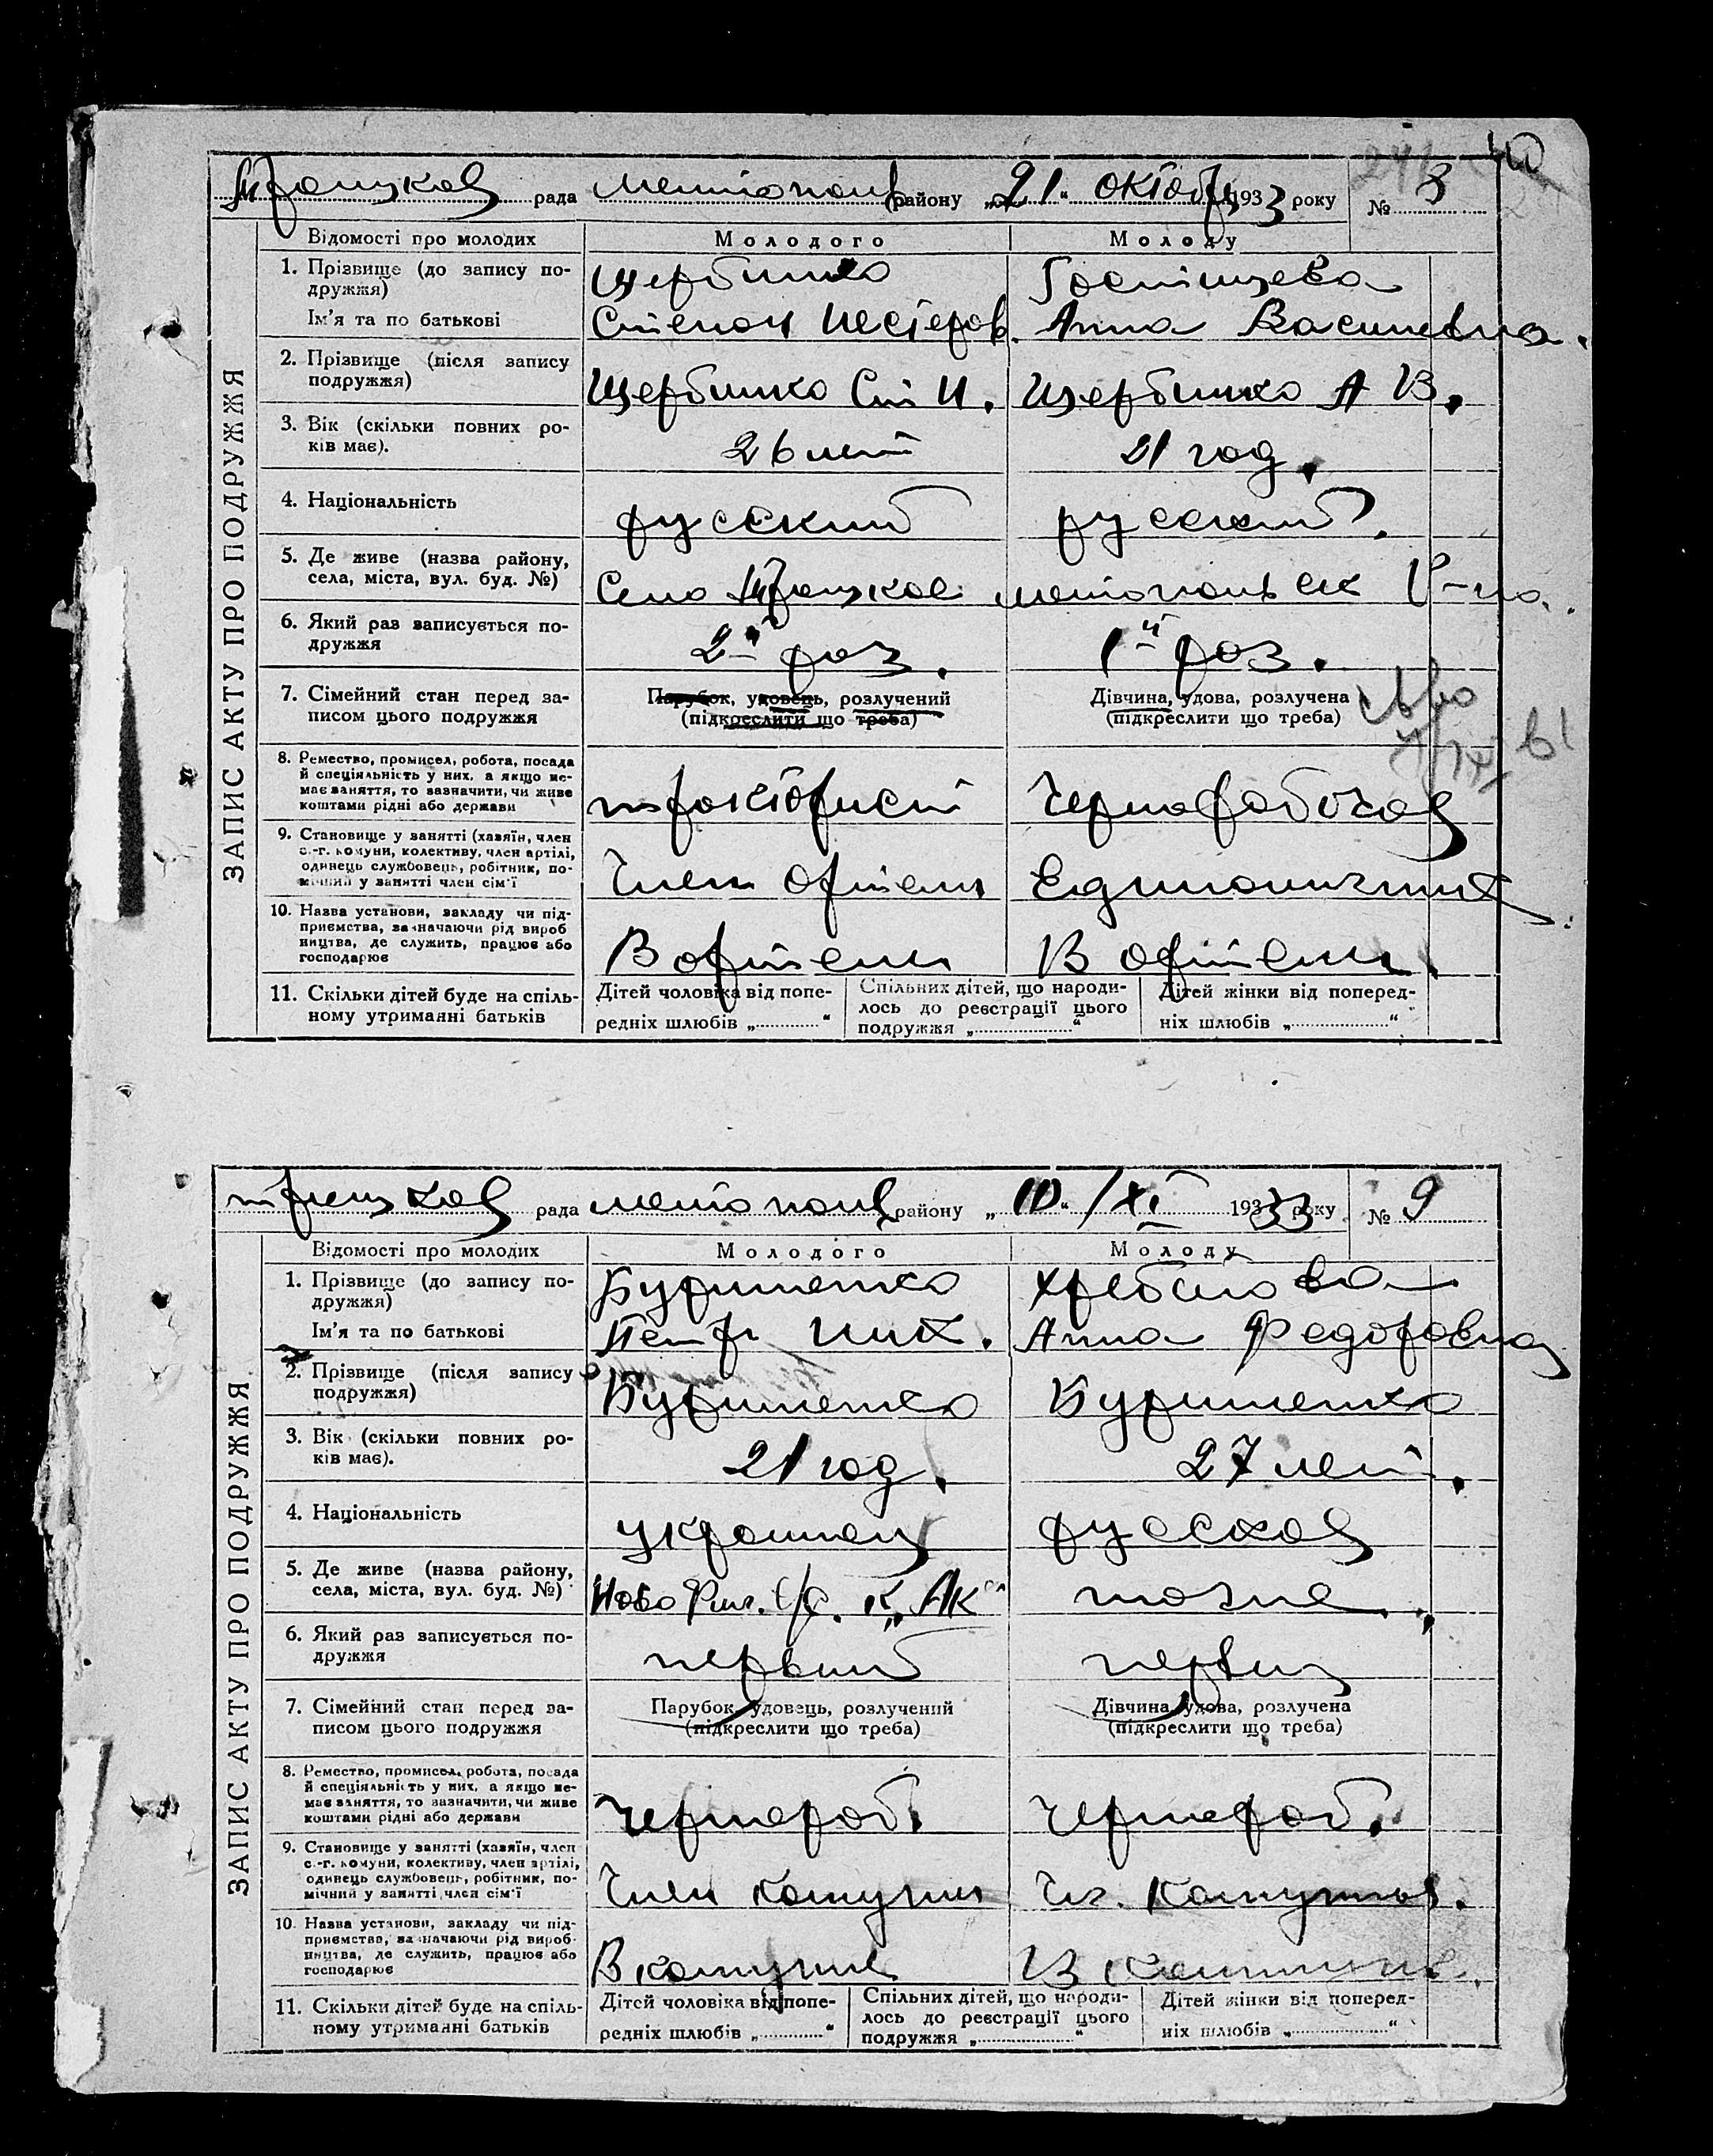 рада района „21“ октобр 1933 року № 8
Відомості про молодих Молодого Молоду
1. Прізвище (до запису по-
дружжя)
Щербинко
Ім'я та по батькові
Степан Нестеров. Анна Васильевна.
2. Прізвище (після запису
подружжя)
Щербинко Ст Н. Щербинко А В.
3. Вік (скільки повних ро-
ків має).
26 лет 21 год.
4. Національність
русский русский.
5. Де живе (назва району,
села, міста, вул. буд. №)
Село р-на.
6. Який раз записується по-
дружжя
2й раз. 1й раз.
7. Сімейний стан перед за-
писом цього подружжя
Парубок, удовець, розлучений
(підкреслити що треба)
Дівчина, удова, розлучена
(підкреслити що треба)
8. Ремество, промисел, робота, посада
й спеціяльність у них, а якщо не-
має заняття, то зазначити, чи живе
коштами рідні або держави
тракторист Чернорабочая
9. Становище у занятті (хазяїн, член
с.-г. комуни, колективу, член артілі,
одинець службовець, робітник, по-
мічний у занятті член сім'ї
Член Артели Единоличник
10. Назва установи, закладу чи під-
приємства, зазначаючи рід вироб
ництва, де служить, працює або
господарює
В артели В артели
11. Скільки дітей буде на спіль-
ному утриманні батьків
Дітей чоловіка від попе-
редніх шлюбів „ “
Спільних дітей, що народи-
лось до реєстрації цього
подружжя „ “
Дітей жінки від поперед-
ніх шлюбів „ “
ЗАПИС АКТУ ПРО ПОДРУЖЖЯ
рада району „10“ /XI 1933 року № 9
Відомості про молодих Молодого Молоду
1. Прізвище (до запису по-
дружжя)
Бурименко Хребтова
Ім'я та по батькові
Петр Ник. Анна Федоровна
2. Прізвище (після запису
подружжя)
Бурименко Бурименко
3. Вік (скільки повних ро-
ків має).
21 год. 27 лет.
4. Національність
украинец русская
5. Де живе (назва району,
села, міста, вул. буд. №)
Ново с/с. тоже
6. Який раз записується по-
дружжя
первый первый
7. Сімейний стан перед за-
писом цього подружжя
Парубок, удовець, розлучений
(підкреслити що треба)
Дівчина, удова, розлучена
(підкреслити що треба)
8. Ремество, промисел, робота, посада
й спеціяльність у них, а якщо не-
має заняття, то зазначити, чи живе
коштами рідні або держави
Чернораб. Чернораб.
9. Становище у занятті (хазяїн, член
с.-г. комуни, колективу, член артілі,
одинець службовець, робітник, по-
мічний у занятті член сім'ї
Член комуны Чл. Комуны.
10. Назва установи, закладу чи під-
приємства, зазначаючи рід вироб-
ництва, де служить, працює або
господарює
В комуне В комуне.
11. Скільки дітей буде на спіль-
ному утриманні батьків
Дітей чоловіка від попе-
редніх шлюбів „ “
Спільних дітей, що народи-
лось до реєстрації цього
подружжя „ “
Дітей жінки від поперед-
ніх шлюбів „ “
ЗАПИС АКТУ ПРО ПОДРУЖЖЯ